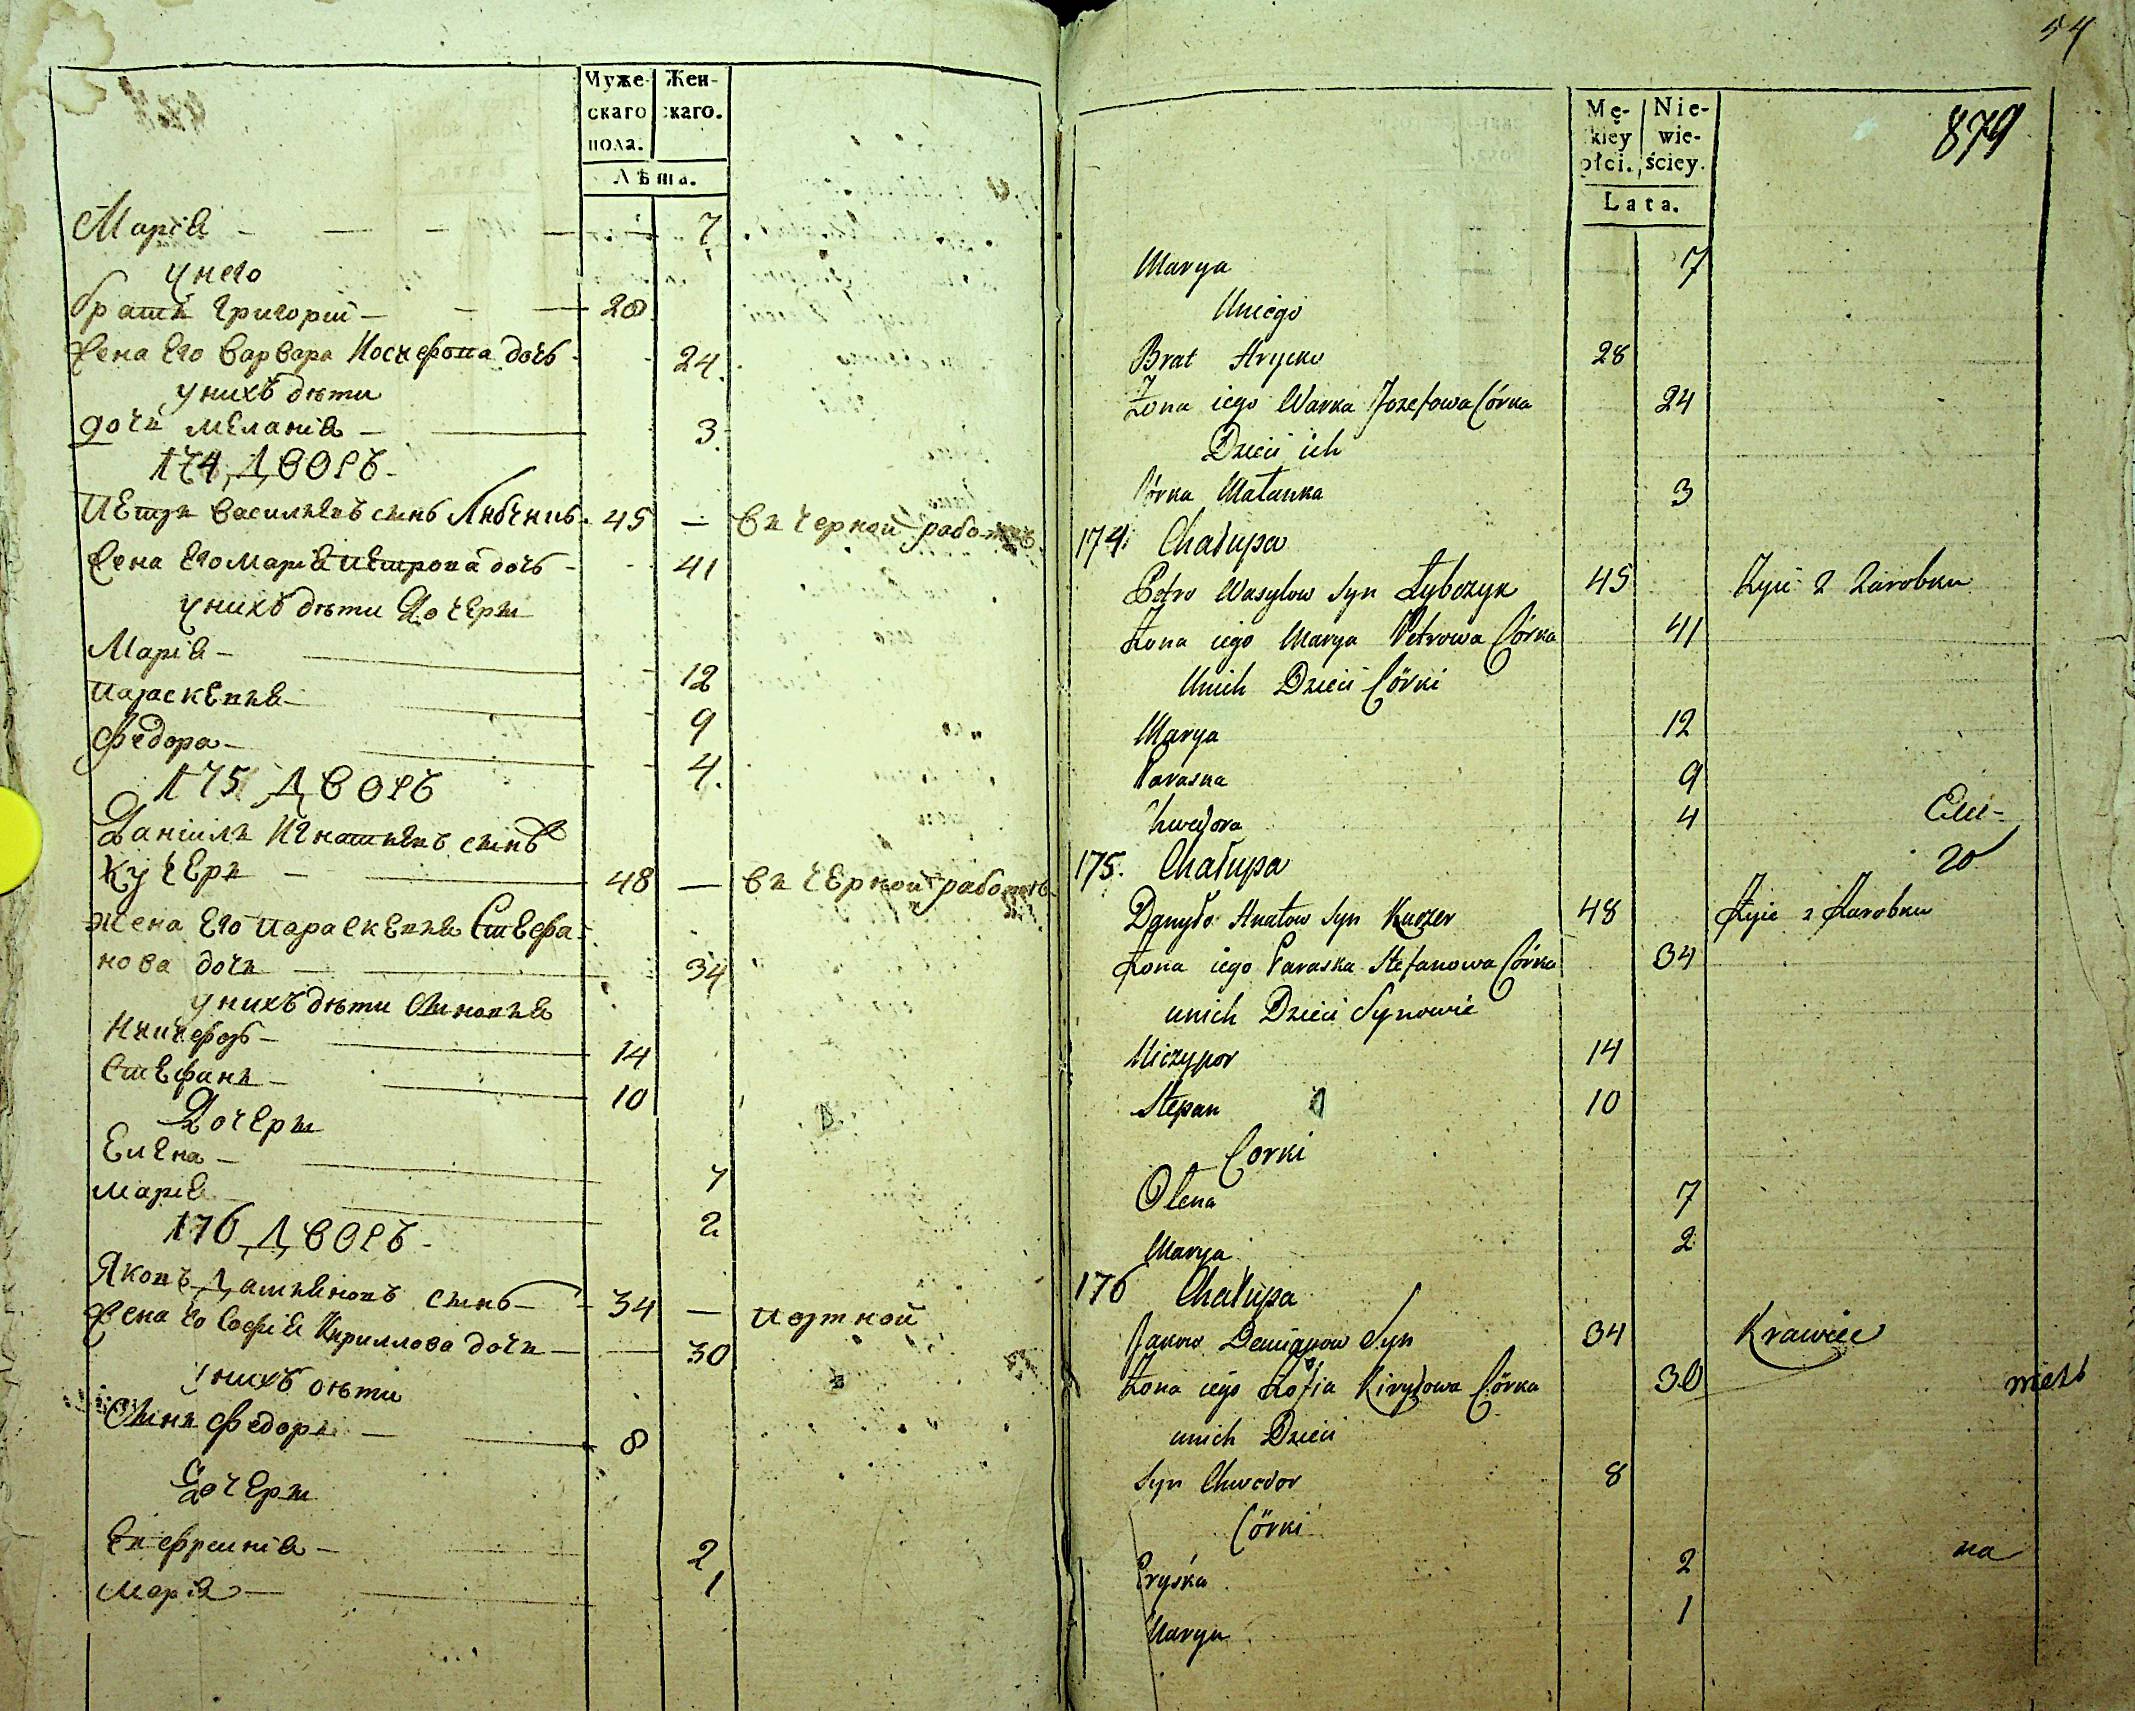 Муже- Жен-
скаго скаго.
пола.
Лѣта.
Марія 7
у него
братъ Григорій 28
Жена Его Варвара Іосифова дочь 24
у нихъ дѣти
дочь Меланія 3
174 Дворъ
Петръ Васильевъ сынъ Лыбчикъ 45 въ черной работѣ
Жена Его Марія Петрова дочь 41
у нихъ дѣти Дочери
Марія 12
Параскевія 9
Федора 4
175 Дворъ
Даніилъ Игнатьевъ сынъ
Кучеръ 48 въ черной работѣ
Жена Его Параскевія Стефа-
нова дочь 34
у нихъ дѣти Сыновья
Никифоръ 14
Стефанъ 10
Дочери
Елена 7
Марія 2
176 Дворъ
Яковъ Даміяновъ сынъ 34 портной
Жена Его Софія Кириллова дочь 30
у нихъ дѣти
Сынъ Федоръ 8
Дочери
Евфросинія 2
Марія 1
54
Mę- Nie-
kiey wie-
płci. ściey.
Lata.
879
Marya 7
Uniego
Brat Hrycko 28
Żona iego Warka Jozefowa Córka 24
Dzieci ich
Córka Małanka 3
174. Chałupa
Petro Wasylow Syn Łybczyk 45 Żyie z Zarobku
Żona iego Marya Petrowa Córka 41
Unich Dzieci Córki
Marya 12
Paraska 9
Chwedora 4
175. Chałupa
20
Danyło Hnatow Syn Kuczer 48 Żyie z Zarobku
Żona iego Paraska Stefanowa Córka 34
unich Dzieci Synowie
Niczypor 14
Stepan 10
Corki
Ołena 7
Marya 2
176 Chałupa
Jakow Demianow Syn 34 Krawiec
Żona iego Zofia Kiryłowa Córka 30
unich Dzieci
Syn Chwedor 8
Córki
Pryśka 2
na
Marya 1